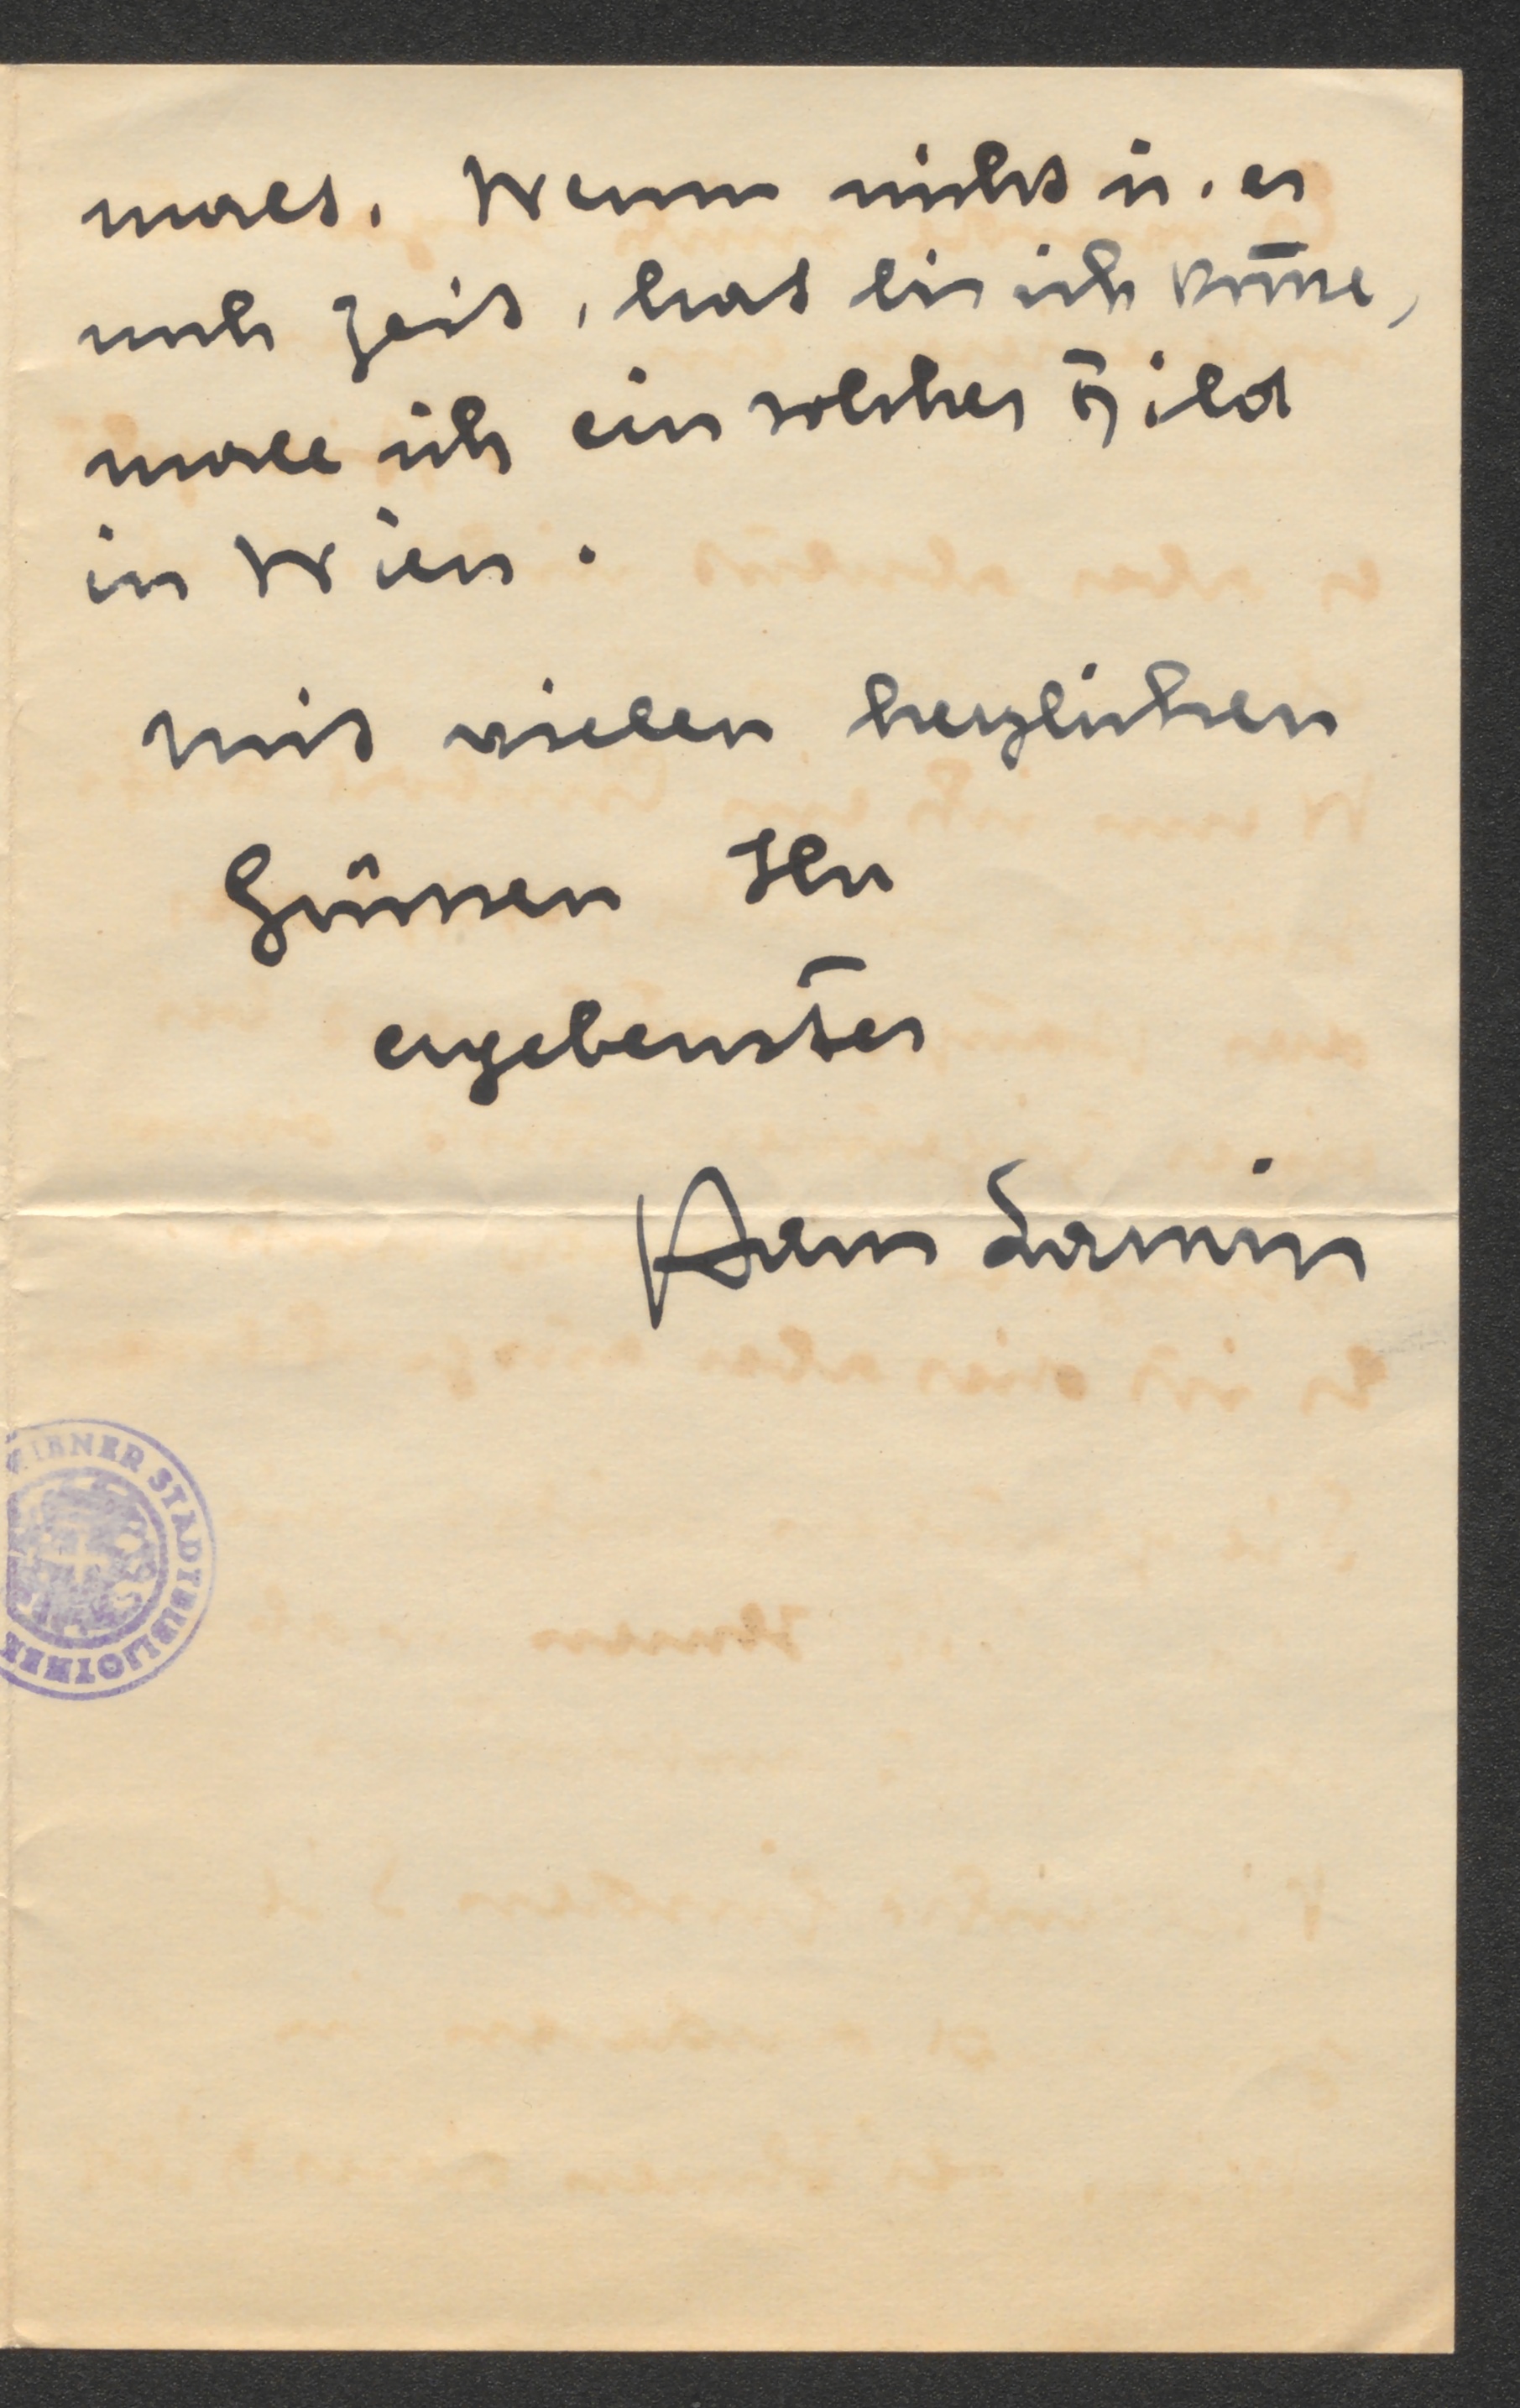 malt. Wenn nicht u. es
noch Zeit, hat bis ich kom̄e,
male ich ein solches Bild
in Wien.
Mit vielen herzlichen
Grüssen Ihr
ergebenster
Hans Larwin
WIENER STADTBIBLIOTHEK